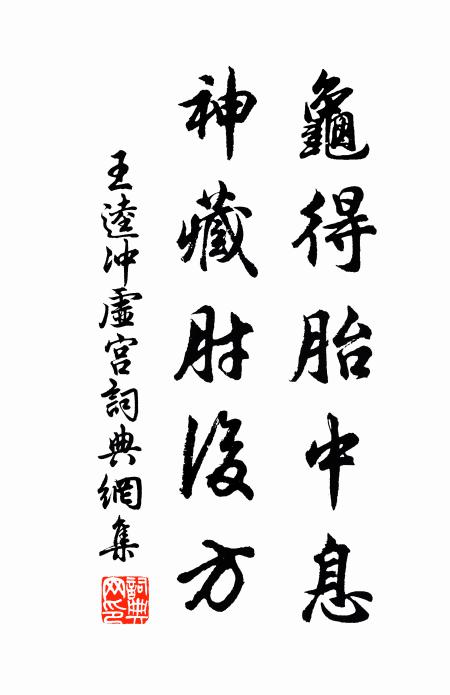 龜得胎中息
神藏肘後方
王逵冲虛宮詞典網集
詞典網印